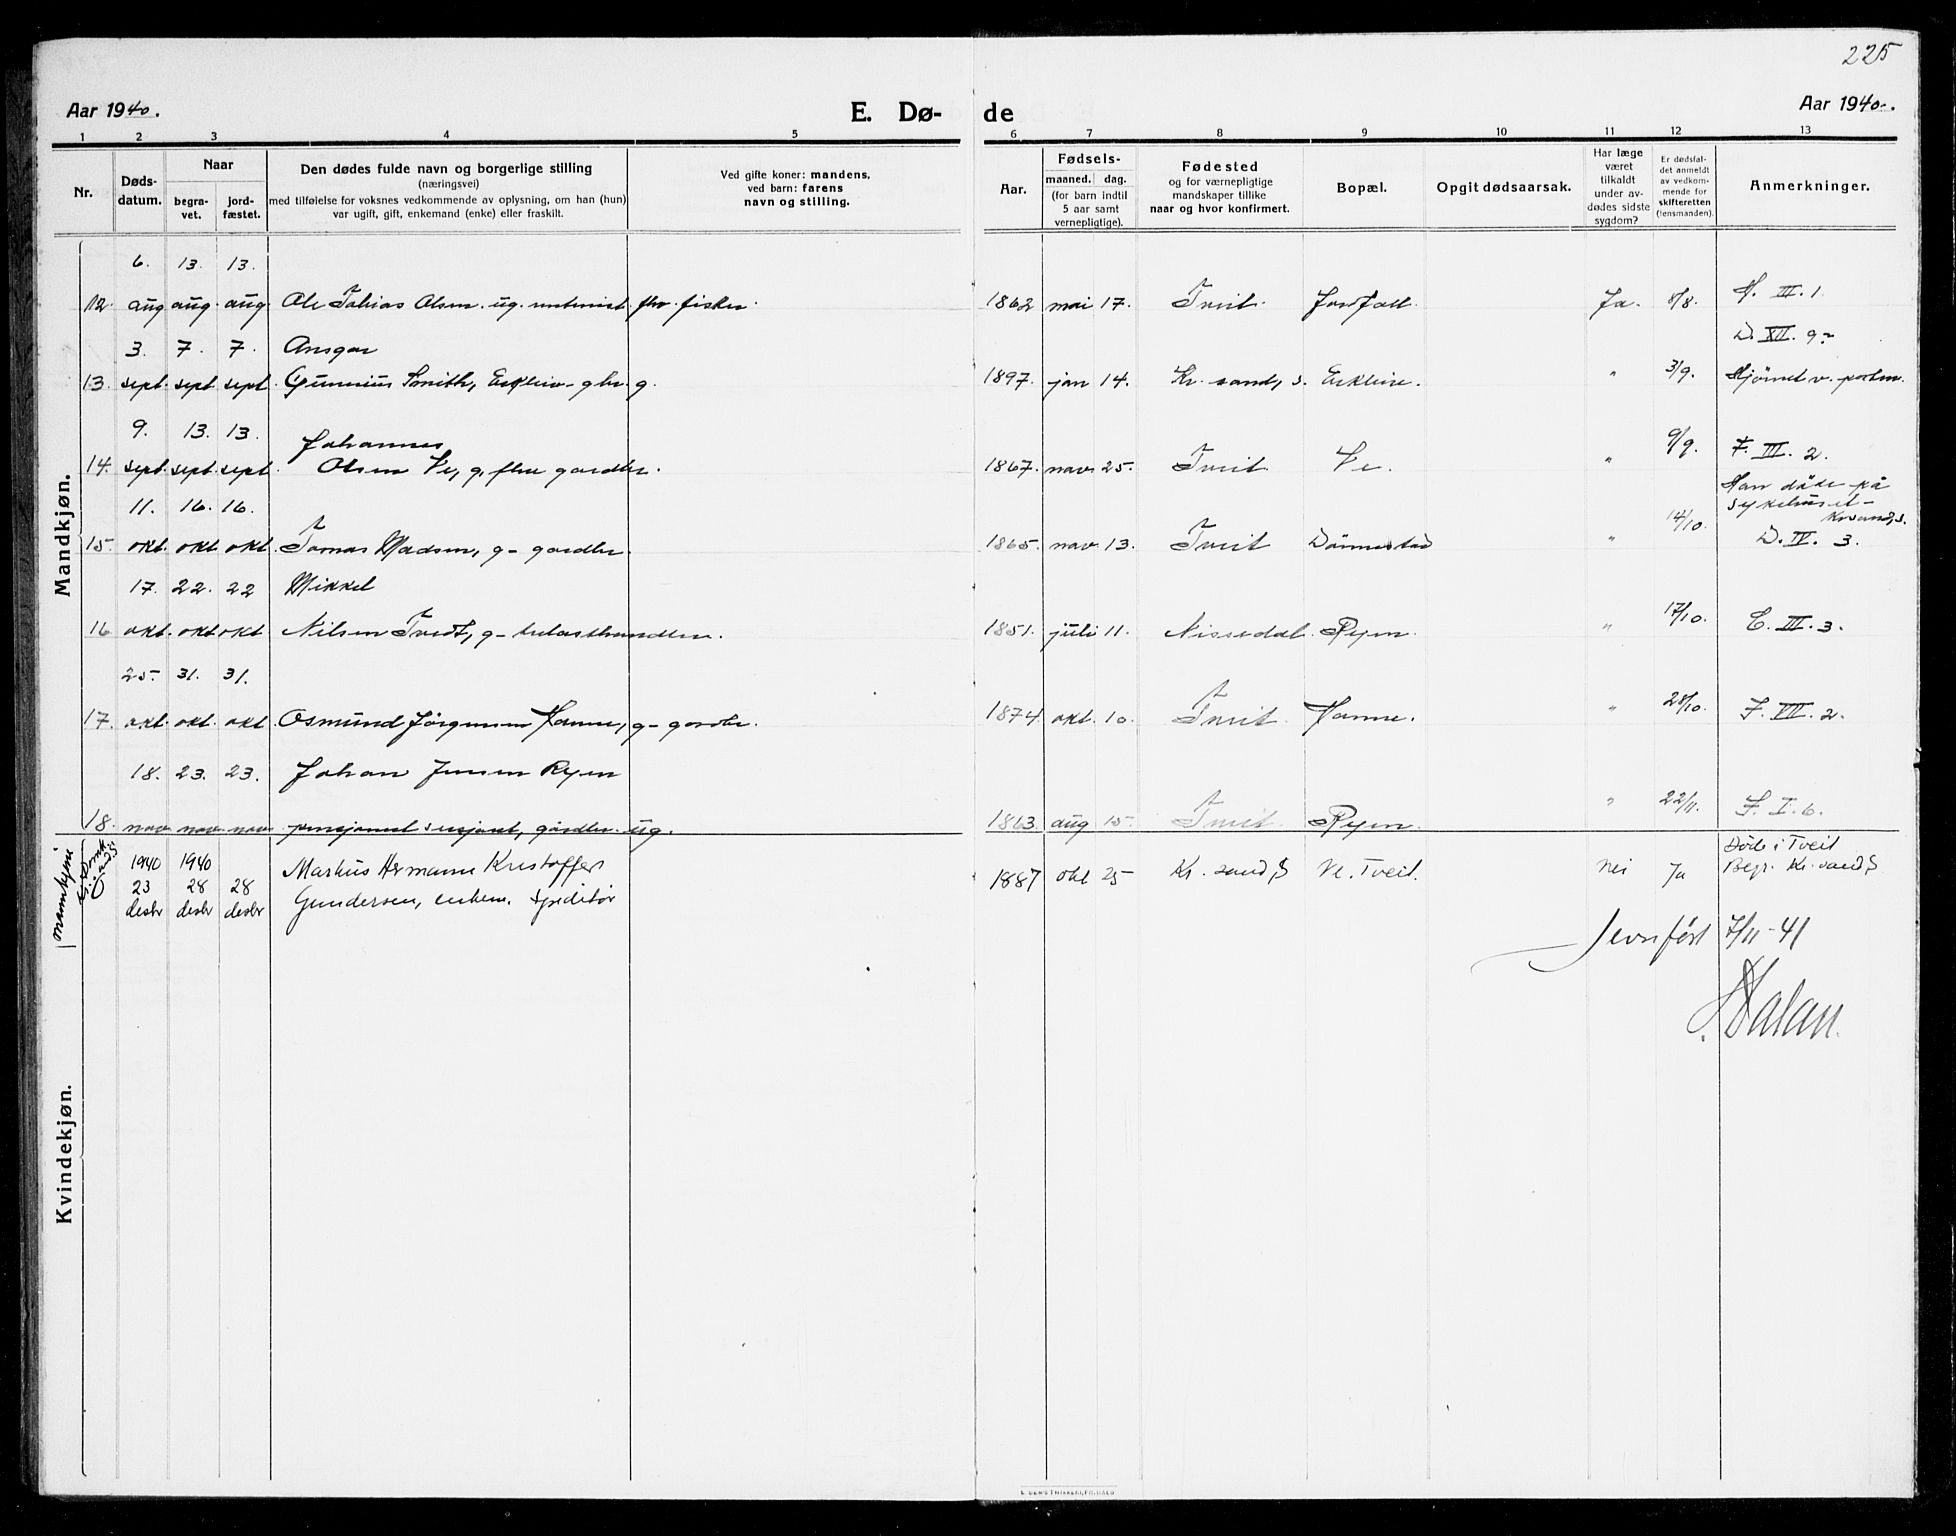 225
Aar 1940. E. Dø- de Aar 1940.
1 2 3 4 5 6 7 8 9 10 11 12 13
Nr. Døds-datum. Naar begra-vet. jord-fæstet. Den dødes fulde navn og borgerlige stilling (næringsvei) med tilføielse for voksnes vedkommende av oplysning, om han (hun) var ugift, gift, enkemand (enke) eller fraskilt. Ved gifte koner: mandens, ved barn: farens navn og stilling. Aar. Fødsels- maaned. dag. (for barn indtil 5 aar samt vernepligtige). Fødested og for værnepligtige mandskaper tillike naar og hvor konfirmert. Bopæl. Opgit dødsaarsak. Har læge været tilkaldt under av-dødes sidste sygdom? Er dødsfal-det anmeldt av vedkom-mende for skifteretten (lensmanden). Anmerkninger.
Mandkjøn.
6. 13. 13.
12. aug aug. aug. Ole Tobias Olsen. ug. fhv. fisker. 1862 mai 17. Tveit. Ja. 8/8. III. 1.
3. 7. 7. Ansgar D. XII. 9.
13. sept. sept. sept. Gunnius Smith, g. 1897. jan 14. Kr. sand, s. " 3/9. Hjørnet v. porten.
9. 13. 13. Johannes
14. sept. sept. sept. Olsen Ve, g. fhv. gardbr. 1867. nov. 25. Tveit Ve. " 9/9. F. III. 2.
11. 16. 16. Han døde på sykehuset Krsand, s.
15. okt. okt. okt. Tomas Madsen, g- gardbr. 1865. nov. 13. Tveit Dønnestad " 14/10. D. IV. 3.
17. 22. 22 Mikkel
16 okt. okt okt Nilsen Tvedt, g- 1851. juli 11. Nissedal. Ryen. " 17/10. E. III. 3.
25. 31. 31.
17. okt. okt. okt Osmund Jørgensen Hamre, g- gardbr. 1874. okt. 10. Tveit Hamre. " 28/10. F. VII. 2.
18. 23. 23. Johan Jensen Ryen
18. nov. nov. nov. pensjonert sersjant, gårdbr. ug. 1863. aug 15. Tveit Ryen. " 22/11. F. I. 6.
mannkjønn
1940 1940 Markus Hermann Kristoffer Døde i Tveit
23 28 28 1887 okt 25 Kr. sand, S Ve. Tveit. Nei Ja Begr. Kr. sand, S
desbr desbr desbr Gundersen, enkem. Speditør
Jevnført 7/11-41
Kvindekjøn.